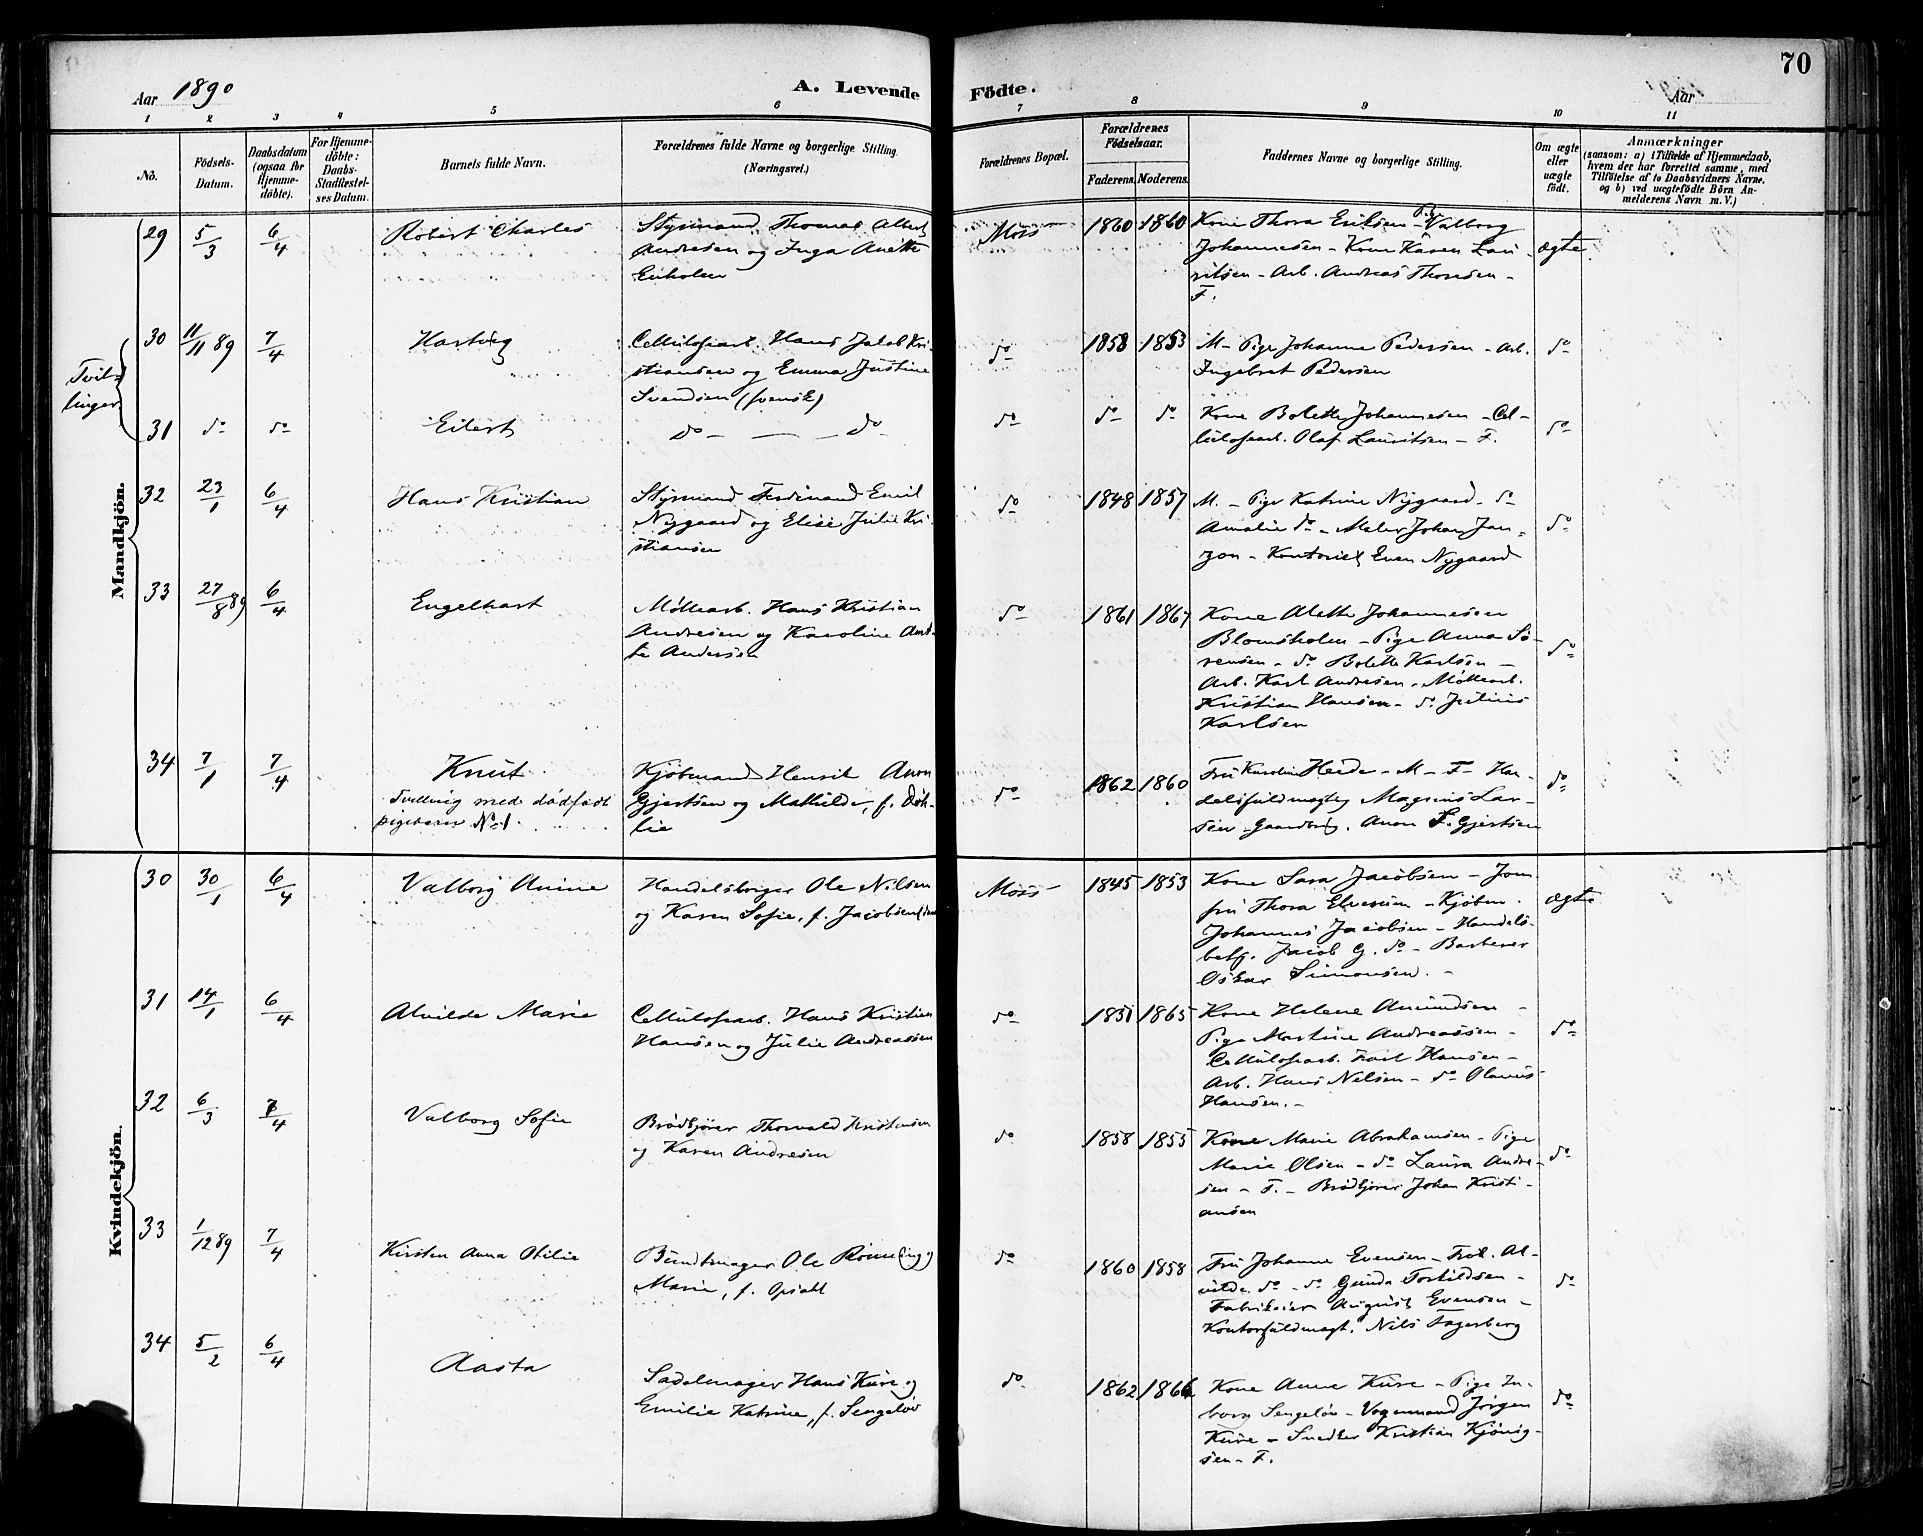 Aar 1890
A. Levende
Födte.
70
Aar
1 2 3 4 5 6 7 8 9 10 11
No.
Födsels-
Datum.
Daabsdatum
(ogsaa for
Hjemme-
döbte).
For Hjemme-
döbte:
Daabs-
Stadfæstel-
ses Datum.
Barnets fulde Navn.
Forældrenes fulde Navne og borgerlige Stilling.
(Næringsvei.)
Forældrenes Bopæl.
Forældrenes
Födselsaar.
Faderens.
Moderens.
Faddernes Navne og borgerlige Stilling.
Om ægte
eller
uægte
födt.
Anmærkninger
(saasom: a) i Tilfælde af Hjemmedaab,
hvem der har forrettet samme, med
Tilföielse af to Daabsvidners Navne,
og b) ved uægtefödte Börn An-
melderens Navn m. V.)
Mandkjön.
29 5/3 6/4
Robert Charles
Styrmand Thomas Albert
Andresen og Inga Anette
Enholm
Moss
1860 1860
Kone Thora Eriksen - Pige Valborg
Johannesen - Kone Karen Lau-
ritsen - Arb. Andreas Thoresen -
F.
ægte
Tvil-
linger
30 11/11 89 7/4
Hartvig
Cellulosearb. Hans Jakob Kri-
stiansen og Emma Justine
Svendsen (svensk)
do
1858 1853
M - Pige Johanne Pedersen - Arb.
Ingebret Pedersen
do
31 do do
Eilert
do - - do
do
do do
Kone Bolette Johannesen - Cel-
lulosearb. Olaf Lauritsen - F.
do
32 23/1 6/4
Hans Kristian
Styrmand Ferdinand Emil
Nygaard og Elise Julie Kri-
stiansen
do
1848 1857
M. - Pige Katrine Nygaard - do
Amalie do - Maler Johan Jan-
zon - Kontorist Even Nygaard
do
33 27/8 89 6/4
Engelhart
Møllearb. Hans Kristian
Andresen og Karoline Anet-
te Andersen
do
1861 1867
Kone Alette Johannesen
Blomsholm - Pige Anna Sö-
rensen - do Bolette Karlsen -
Arb. Karl Andresen - Møllearb.
Kristian Hansen - do Julius
Karlsen
do
34 7/1 7/4
Knut
Tvilling med dødfødt
pigebarn No 1.
Kjøbmand Henrik Anon
Gjertsen og Mathilde, f. Døh-
lie
do
1862 1860
Fru Karoline Heide - M - F - Han-
delsfuldmægtig Magnus Lar-
sen - Gaardbr. Anon F. Gjertsen
do
Kvindekjön.
30 30/1 6/4
Valborg Anine
Handelsborger Ole Nilsen
og Karen Sofie, f. Jacobsen
Moss
1845 1853
Kone Sara Jacobsen - Jom-
fru Thora Elvesen - Kjøbm.
Johannes Jacobsen - Handels-
betj. Jacob G. do - Barberer
Oskar Simonsen. -
ægte
31 14/1 6/4
Alvilde Marie
Cellulosearb. Hans Kristian
Hansen og Julie Andreassen
do
1851 1865
Kone Helene Amundsen -
Pige Martine Andreassen -
Cellulosearb. Karl Hansen -
Arb. Hans Nelsen - do Olanus
Hansen. -
do
32 6/3 7/4
Valborg Sofie
Brödkjører Thorvald Kristensen
og Karen Andresen
do
1858 1855
Kone Marie Abrahamsen - Pige
Marie Olsen - do Laura Andre-
sen - F. - Brödkjører Johan Kristi-
ansen
do
33 1/12 89 7/4
Kirsten Anna Otilie
Bundtmager Ole Rönne(ng)
Marie, f. Opsahl
do
1860 1858
Fru Johanne Evensen - Frøk. Al-
vilde do - do Gunda Torkildsen -
Fabrikeier August Evensen -
Kontorfuldmægt. Nils Fagerberg
do
34 5/2 6/4
Aasta
Sadelmager Hans Kure og
Emilie Katrine, f. Sengeløv
do
1862 1866
Kone Anne Kure - Pige In-
borg Sengeløv - Vognmand Jörgen
Kure - Snedker Kristian Kjönig-
sen - F.
do